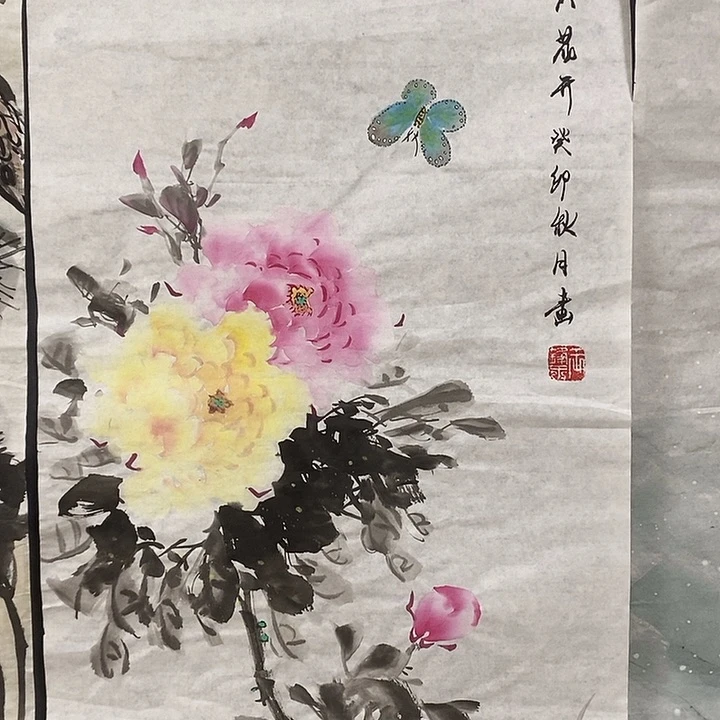 花开癸卯秋月画